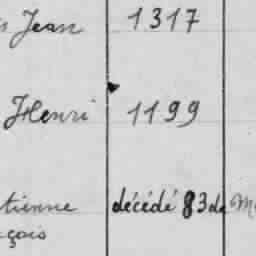 Jean 1317
Henri 1199
tienne décédé 83 de
çois